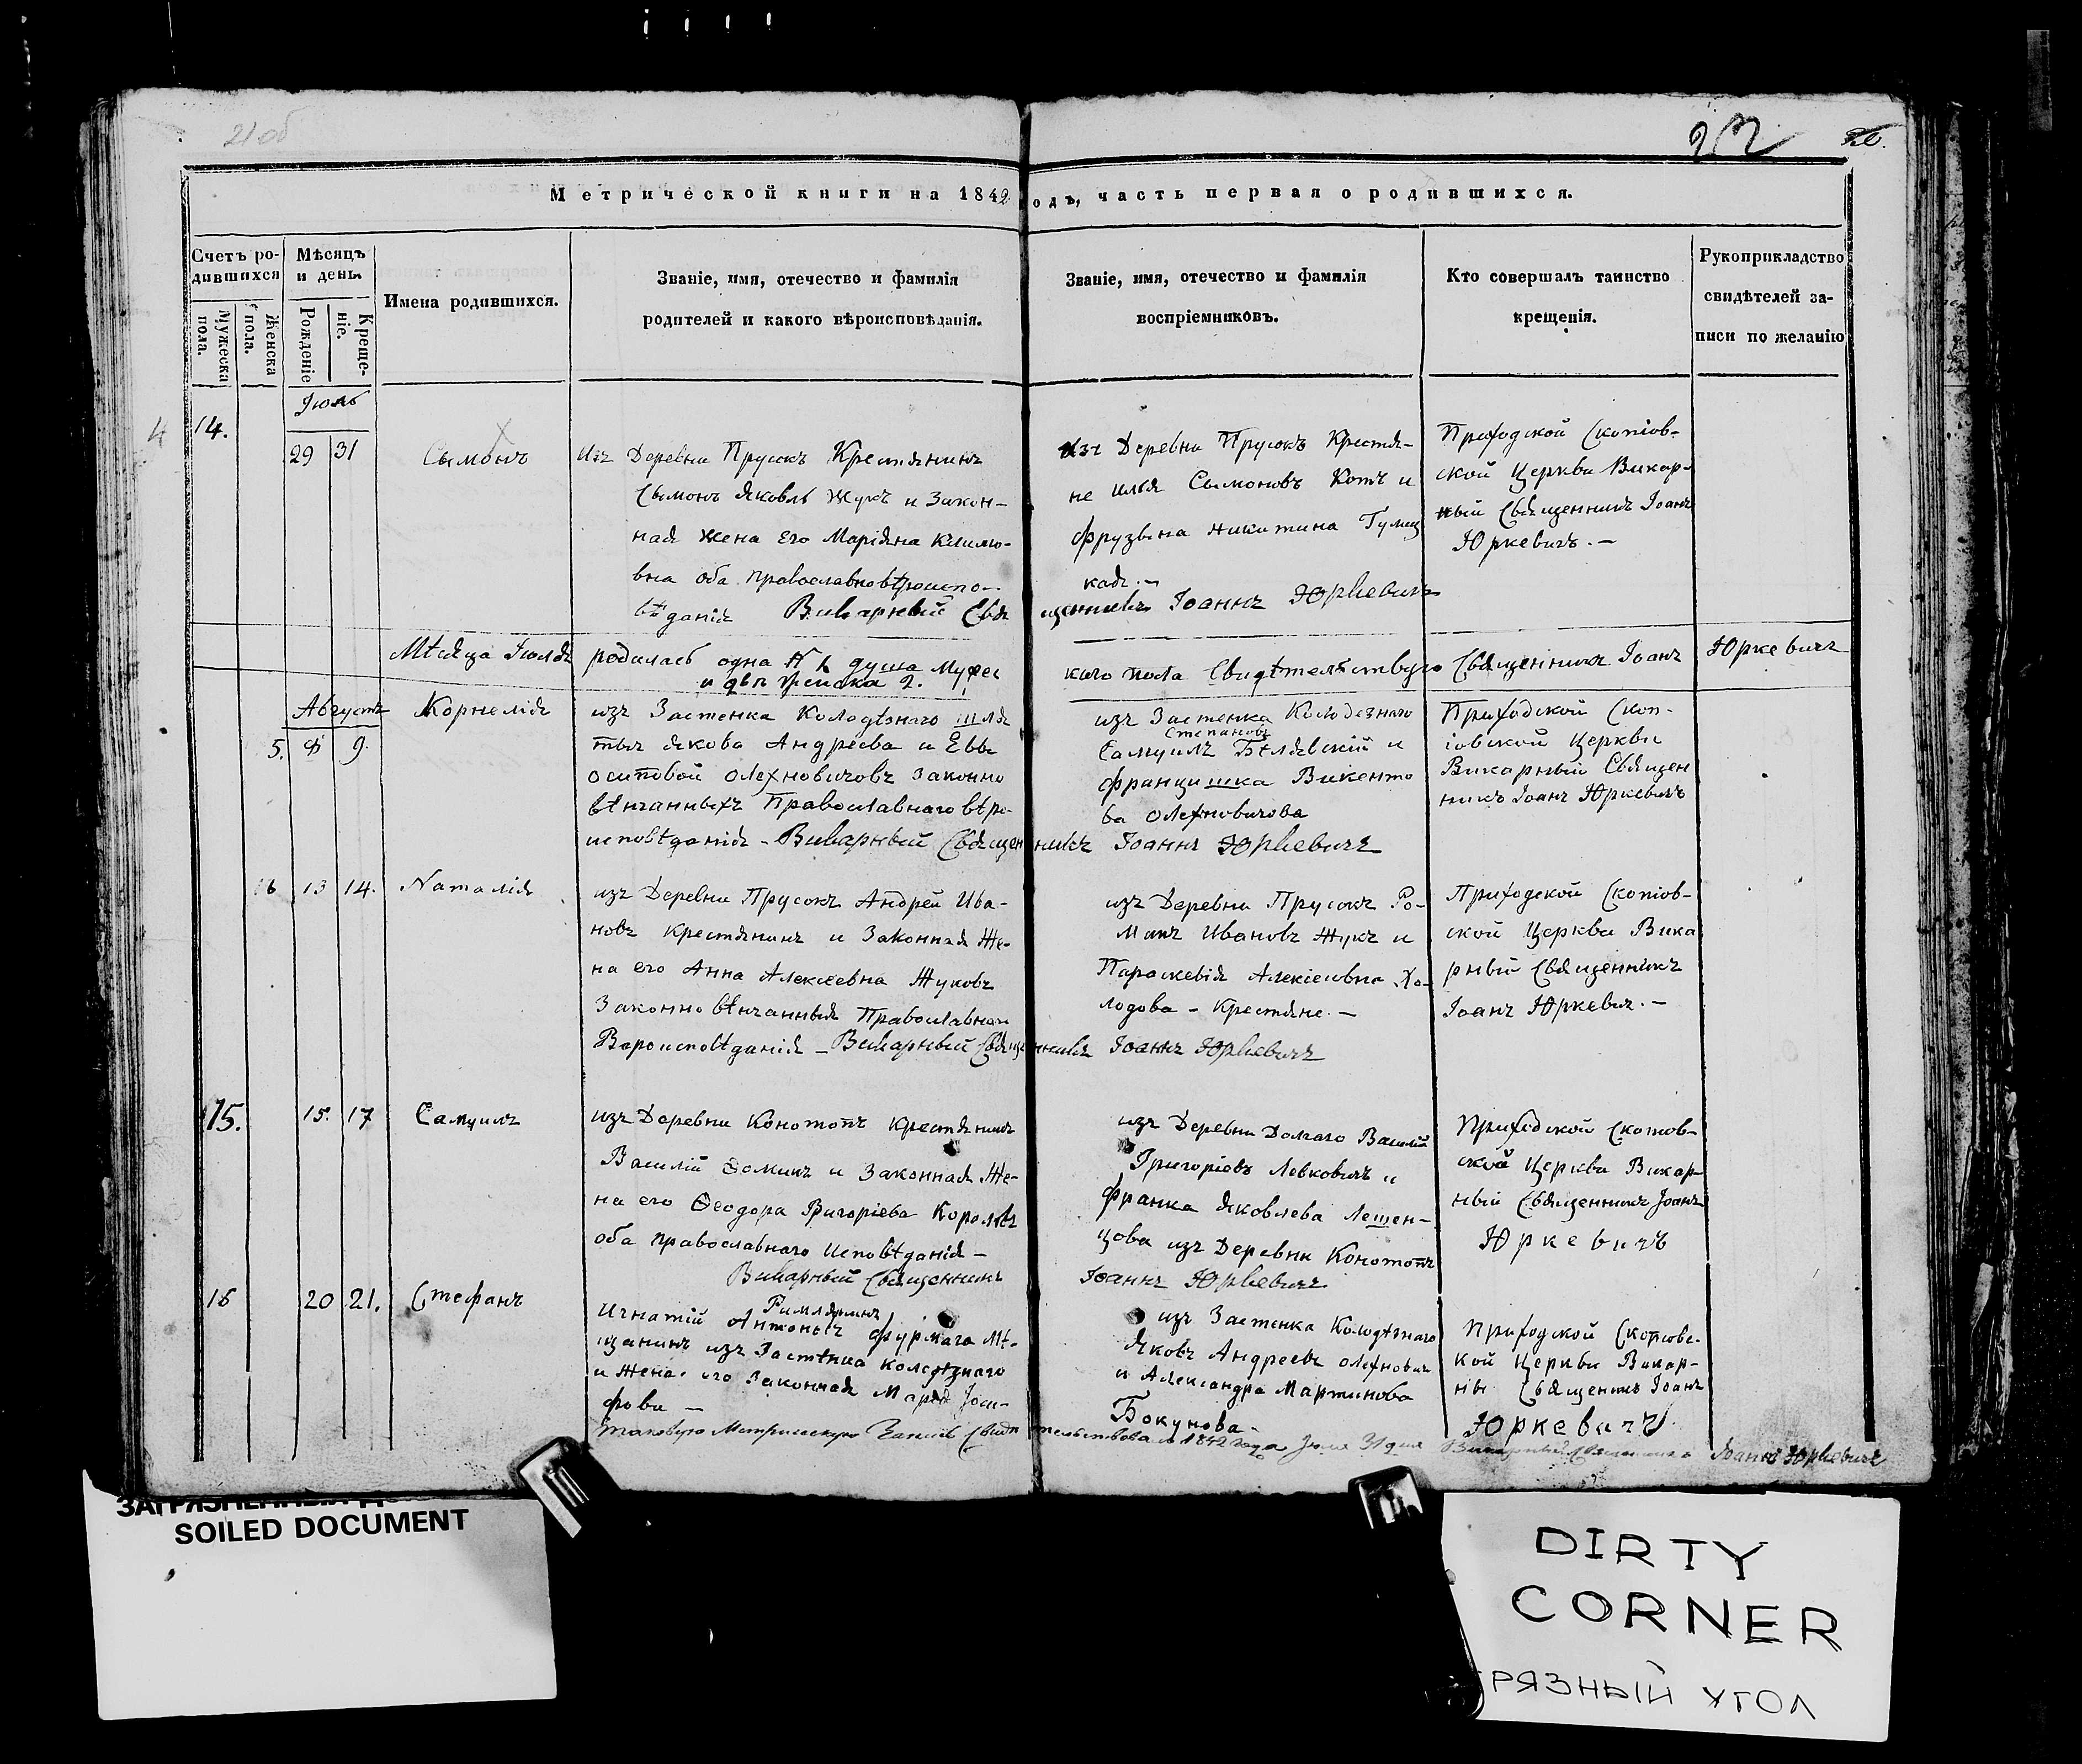 21об
22
Метрической книги на 1842 одъ, часть первая о родившихся.
Счетъ ро-
дившихся
Мужеска
пола.
Женска
пола.
Мѣсяцъ
и день
Рожденіе
Креще-
ніе.
Имена родившихся.
Званіе, имя, отечество и фамилія
родителей и какого вѣроисповѣданія.
Званіе, имя, отечество и фамилія
воспріемниковъ.
Кто совершалъ таинство
крещенія.
Рукоприкладство
свидѣтелей за-
писи по желанію
4
Іюль
14.
29 31
Сымонъ
Изъ Деревни Прусокъ Крестянинъ
Сымонъ Яковлъ Жукъ и Закон-
ная жена его Маріяна Климо-
вна оба православновѣроиспо-
вѣданія Викарный Свя
изъ Деревни Прусокъ Крестя-
не Илья Сымоновъ Котъ и
Фрузына Никитина Гулиц
кая.-
щенникъ Іоаннъ Юркевичъ
Приходской Скопіов-
ской Церкви Викар-
ный Священникъ Іоанъ
Юркевичъ.-
Мѣсяца Іюля родилась одна душа Мужес
и двѣ женска 2.
каго пола Свидѣтельствую Священникъ Іоанъ Юркевичъ
Августъ
5. 9.
Корнелія
изъ Застенка Колодѣзнаго шля
тыл Якова Андреева и Евы
осиповой Олехновичовъ законно
вѣнчанныхъ Православнаго вѣро-
исповѣданія - Викарный Священникъ Іоаннъ Юркевичъ
изъ Застенка Колодезнаго
Степановъ
Самуилъ Бѣлявскій и
Францишка Викенто
ва Олехновичова
Приходской Скоп-
іовской Церкви
Викарный Священ
никъ Іоанъ Юркевичъ
6 13 14.
Наталія
изъ Деревни Прусокъ Андрей Ива-
новъ Крестянинъ и Законная Же-
на его Анна Алексеевна Жуковъ
Законно вѣнчанныя Православнаго
Вероисповѣданія - Викарный Священникъ Іоаннъ Юркевичъ
изъ Деревни Прусокъ Ро-
манъ Ивановъ Жукъ и
Параскевія Алексіевна Хо-
лодова - Крестяне.-
Приходской Скопіов-
ской Церкви Вика
рный Священникъ
Іоанъ Юркевич.-
15.
15. 17
Самуилъ
изъ Деревни Конотопъ Крестянинъ
Василій Ѳоминъ и Законная Же-
на его Ѳеодора Григоріева Король
оба православнаго исповѣданія -
Викарный Священникъ
изъ Деревни Долгаго Василій
Григоріевъ Левковичъ и
Франка Яковлева Лешен-
цова изъ Деревни Конотопъ
Іоаннъ Юркевичъ
Приходской Скопіов-
ской Церкви Викар-
ный Священникъ Іоанъ
Юркевичъ
16
20 21.
Стефанъ
Римлянинъ
Игнатій Антоновъ Мѣ-
щанинъ изъ Застѣнка колодѣзнаго
и Жена его Законная Іоси-
фова -
изъ Застенка Колодѣзнаго
Яковъ Андреевъ Олехнович
и Александра Мартинова
Бокунова.
Приходской Скопіовс-
кой Церкви Викар-
ны Священикъ Іоанъ
Юркевичъ
таковую Метрическую Запись Свидѣтельствовалъ 1842 года 31 дня Викарный Священникъ Іоаннъ Юркевичъ
SOILED DOCUMENT
DIRTY
CORNER
ГРЯЗНЫЙ УГОЛ